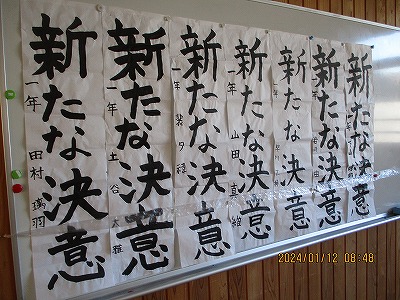 新たな決意
一年 田村 璃羽
新たな決意
一年 土谷 太雅
新たな決意
一年
新たな決意
一年 山田 直
新たな決意
一年
新たな決意
新たな決意
2024/01/12 08:48